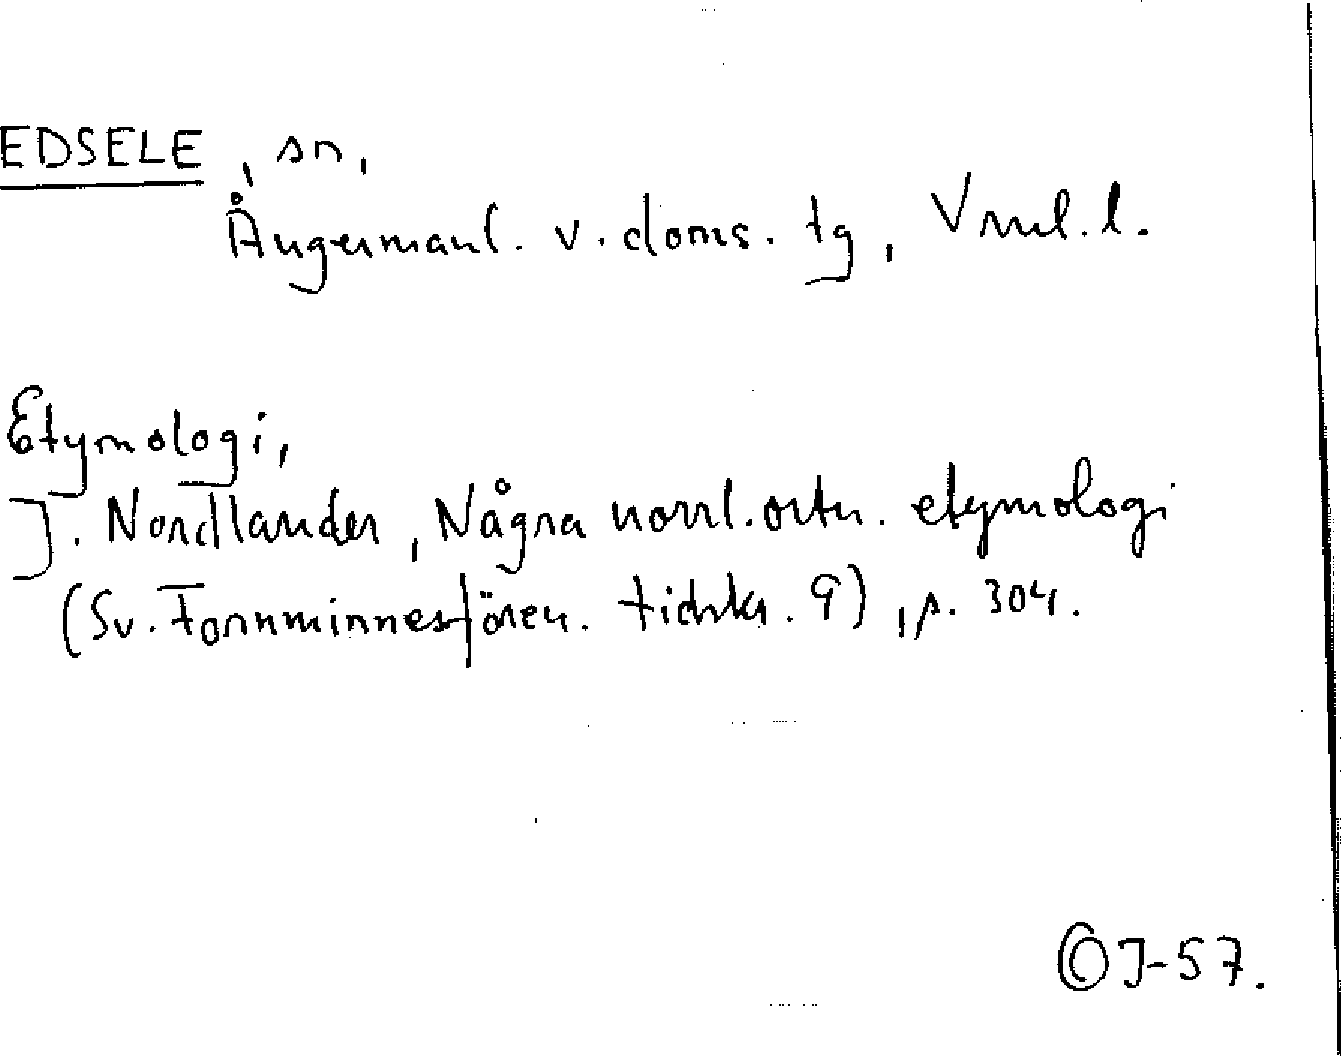 EDSELE, sn,
Ångermanl. v. doms. tg, Vnrl. l.
Etymologi,
J. Nordlander, Några norrl. ortn. etymologi
(Sv. Fornminnesfören. tidskr. 9), p. 304.
ÖJ-57.